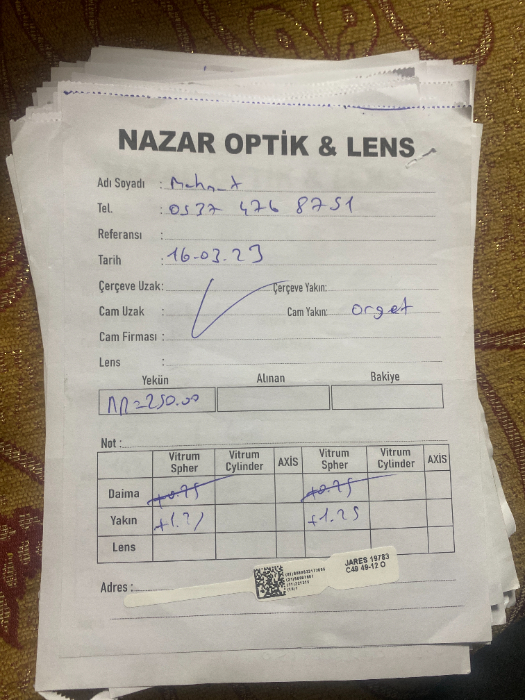 NAZAR OPTİK & LENS
Adı Soyadı : Mehmet
Tel. : 0537 476 8751
Referansı :
Tarih : 16-03.23
Çerçeve Uzak: Çerçeve Yakın:
Cam Uzak : Cam Yakın: orget
Cam Firması :
Lens :
Yekün Alınan Bakiye
=250.00
Not :
Vitrum Spher Vitrum Cylinder AXİS Vitrum Spher Vitrum Cylinder AXİS
Daima +0.75 +0.75
Yakın +1.25 +1.25
Lens
Adres :
JARES 19783
C40 49-12 O